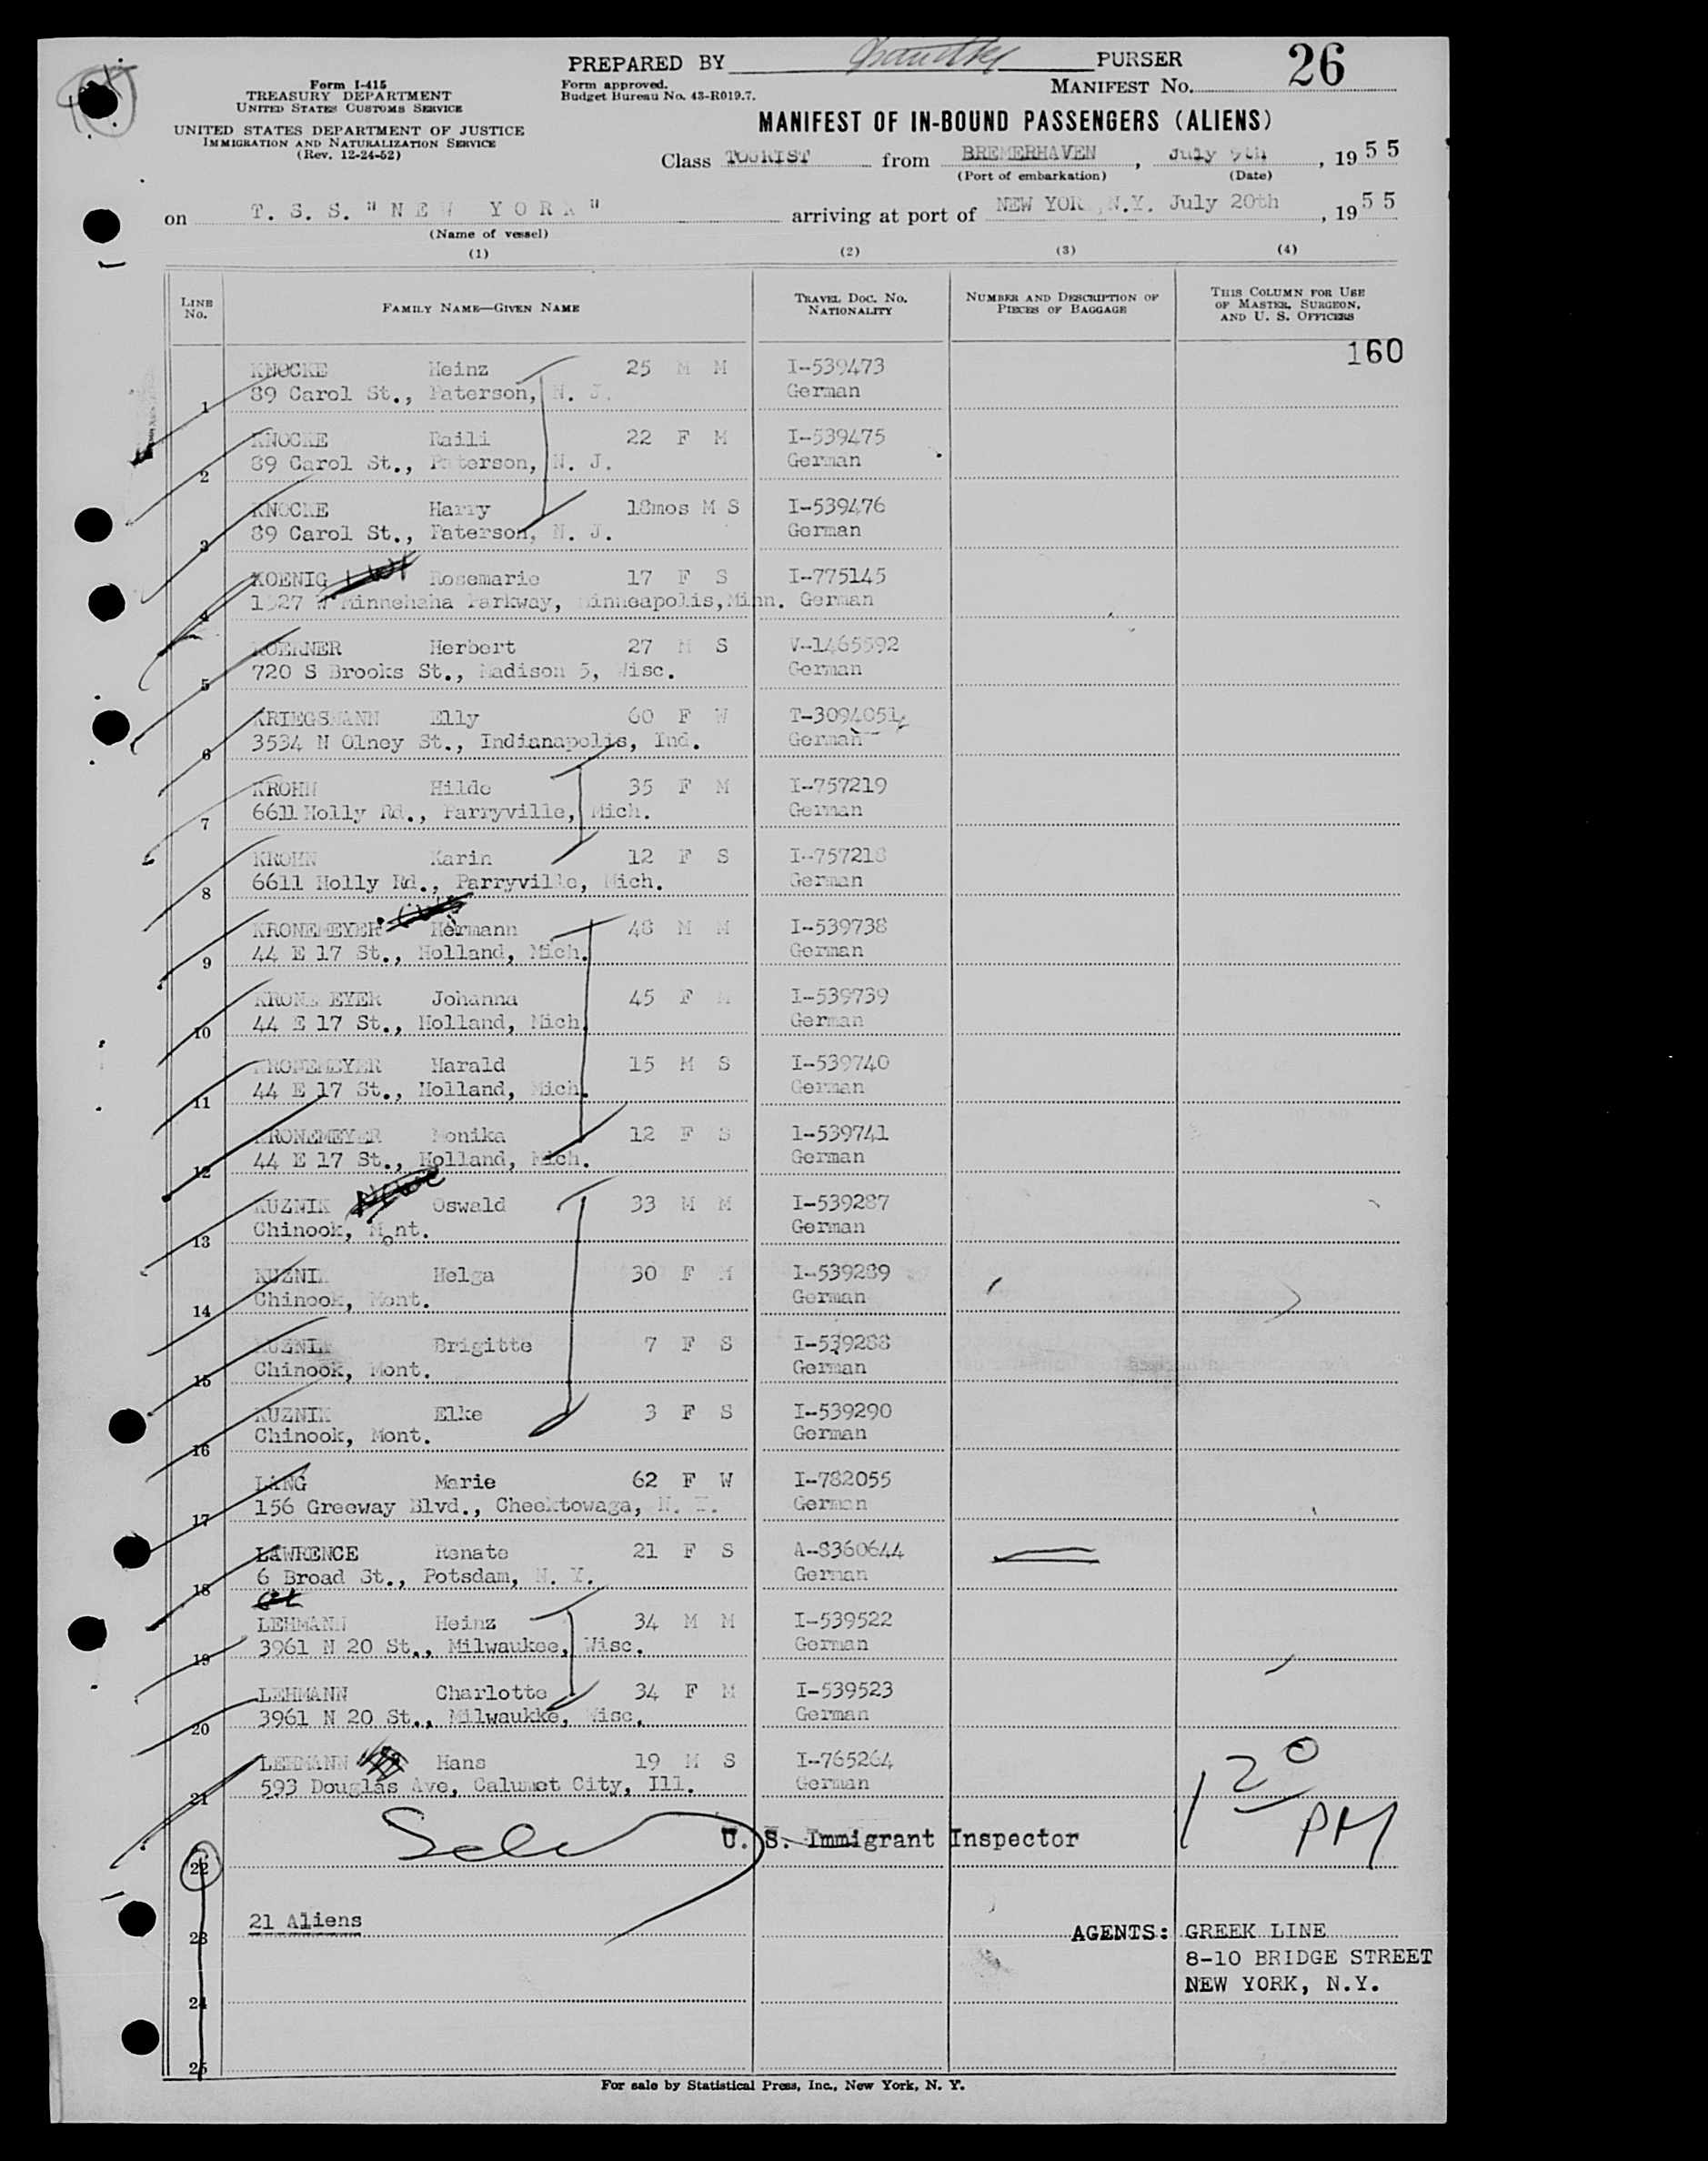 PREPARED BY PURSER 26
Form I-415
TREASURY DEPARTMENT
UNITED STATES CUSTOMS SERVICE
Form approved.
Budget Bureau No. 43-R019.7.
MANIFEST NO.
UNITED STATES DEPARTMENT OF JUSTICE
IMMIGRATION AND NATURALIZATION SERVICE
(Rev. 12-24-52)
MANIFEST OF IN-BOUND PASSENGERS (ALIENS)
Class TOURIST from BREMERHAVEN, July 9th, 1955
(Port of embarkation) (Date)
on T. S. S. "NEW YORK" arriving at port of NEW YORK, N.Y. July 20th, 1955
(Name of vessel)
(1) (2) (3) (4)
LINE No. FAMILY NAME—GIVEN NAME TRAVEL DOC. NO. NATIONALITY NUMBER AND DESCRIPTION OF PIECES OF BAGGAGE THIS COLUMN FOR USE OF MASTER, SURGEON, AND U. S. OFFICERS
160
KNOCKE Heinz 25 M M I-539473
1 89 Carol St., Paterson, N. J. German
KNOCKE Raili 22 F M I-539475
2 89 Carol St., Paterson, N. J. German
KNOCKE Harry 18mos M S I-539476
3 89 Carol St., Paterson, N. J. German
KOENIG Rosemarie 17 F S I-775145
4 1527 W Minnehaha Parkway, Minneapolis, Minn. German
KOERNER Herbert 27 M S V-1465592
5 720 S Brooks St., Madison 5, Wisc. German
KRIEGSMANN Elly 60 F W T-3094051
6 3534 N Olney St., Indianapolis, Ind. German
KROHN Hilde 35 F M I-757219
7 6611 Holly Rd., Parryville, Mich. German
KROHN Karin 12 F S I-757218
8 6611 Holly Rd., Parryville, Mich. German
KRONEMEYER Hermann 48 M M I-539738
9 44 E 17 St., Holland, Mich. German
KRONEMEYER Johanna 45 F M I-539739
10 44 E 17 St., Holland, Mich. German
KRONEMEYER Harald 15 M S I-539740
11 44 E 17 St., Holland, Mich. German
KRONEMEYER Monika 12 F S 1-539741
12 44 E 17 St., Holland, Mich. German
KUZNIK Oswald 33 M M I-539287
13 Chinook, Mont. German
KUZNIK Helga 30 F M I-539289
14 Chinook, Mont. German
KUZNIK Brigitte 7 F S I-539288
15 Chinook, Mont. German
KUZNIK Elke 3 F S I-539290
16 Chinook, Mont. German
LANG Marie 62 F W I-782055
17 156 Greeway Blvd., Cheektowaga, N. Y. German
LAWRENCE Renate 21 F S A-8360644
18 6 Broad St., Potsdam, N. Y. German
LEHMANN Heinz 34 M M I-539522
19 3961 N 20 St., Milwaukee, Wisc. German
LEHMANN Charlotte 34 F M I-539523
20 3961 N 20 St., Milwaukke, Wisc. German
LEHMANN Hans 19 M S I-765264
21 593 Douglas Ave, Calumet City, Ill. German
1 20 PM
U. S. Immigrant Inspector
22
23 21 Aliens
AGENTS: GREEK LINE
8-10 BRIDGE STREET
NEW YORK, N.Y.
24
25
For sale by Statistical Press, Inc., New York, N. Y.